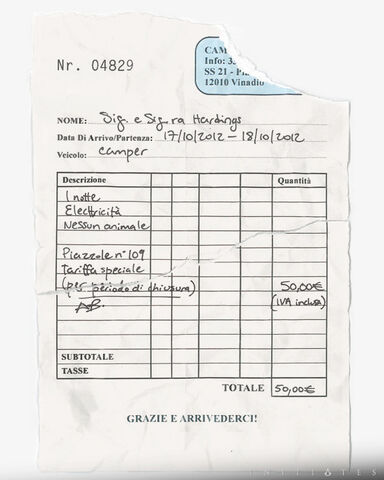 Nr. 04829
CAM
Info: 33
SS 21 - Pi
12010 Vinadio
NOME: Sig. e Sig.ra Hardings
Data Di Arrivo/Partenza: 17/10/2012 – 18/10/2012
Veicolo: camper
Descrizione Quantità
1 notte
Elettricità
Nessun animale
Piazzole n° 109
Tariffa speciale
(per periodo di chiusura) 50,00€
(IVA inclusa)
SUBTOTALE
TASSE
TOTALE 50,00€
GRAZIE E ARRIVEDERCI!
INITIATES